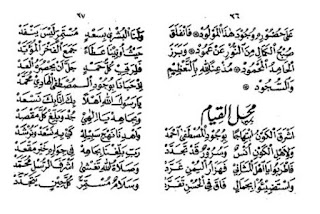 على حضوره وجود هذا المولود * فانفلق
صبح الكمال من النور عن عمود * وبرز
الحامد المحمود * مذعنا لله بالتعظيم
والسجود
محل القيام
اشرق الكون ابتهاجا بوجود المصطفى احمد
ولاهل الكون انس وسرور قد تجدد
فاطربوا يا اهل المثاني فهزار اليمن غرد
واستضيئوا بجمال فاق في الحسن تفرد
ولنا البشرى بسعد مستمر ليس ينفد
حيث اوتينا عطاء جمع الفخر المؤبد
فلربي كل حمد
اذ حبانا بوجود المصطفى الهادي محمد
يا رسول الله اهلا بك انا بك نسعد
وبجاهه يا الهي جد وبلغ كل مقصد
واهدنا نهج سبيله كي به نسعد ونرشد
رب بلغنا بجاهه في جواره خير مقعد
وصلاة الله تغشى اشرف الرسل محمد
وسلام مستمر كل حين يتجدد